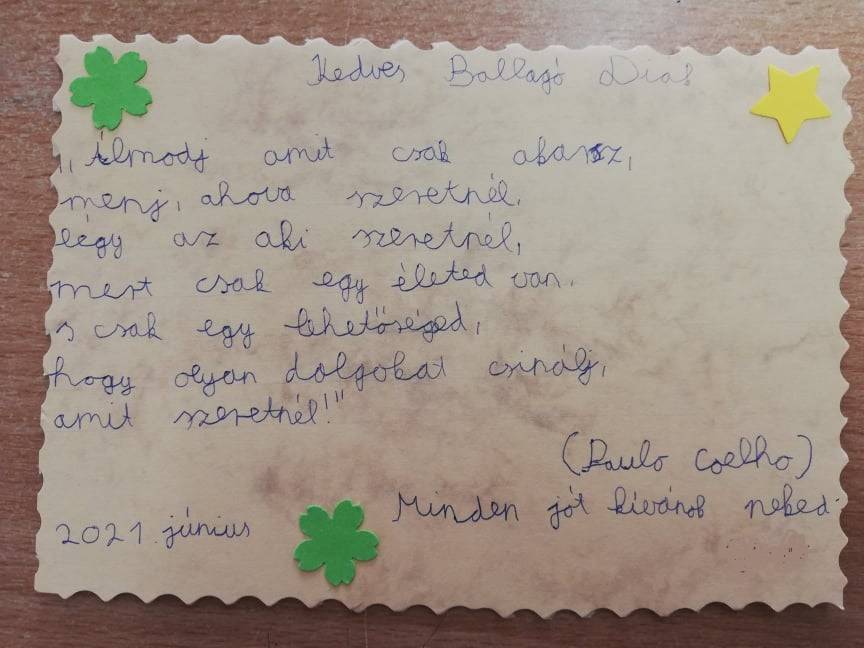 Kedves Ballagó Diák
„Álmodj amit csak akarsz,
menj, ahova szeretnél.
légy az aki szeretnél,
mert csak egy életed van.
s csak egy lehetőséged,
hogy olyan dolgokat csinálj,
amit szeretnél!"
(Paulo Coelho)
Minden jót kívánok neked.
2021. június